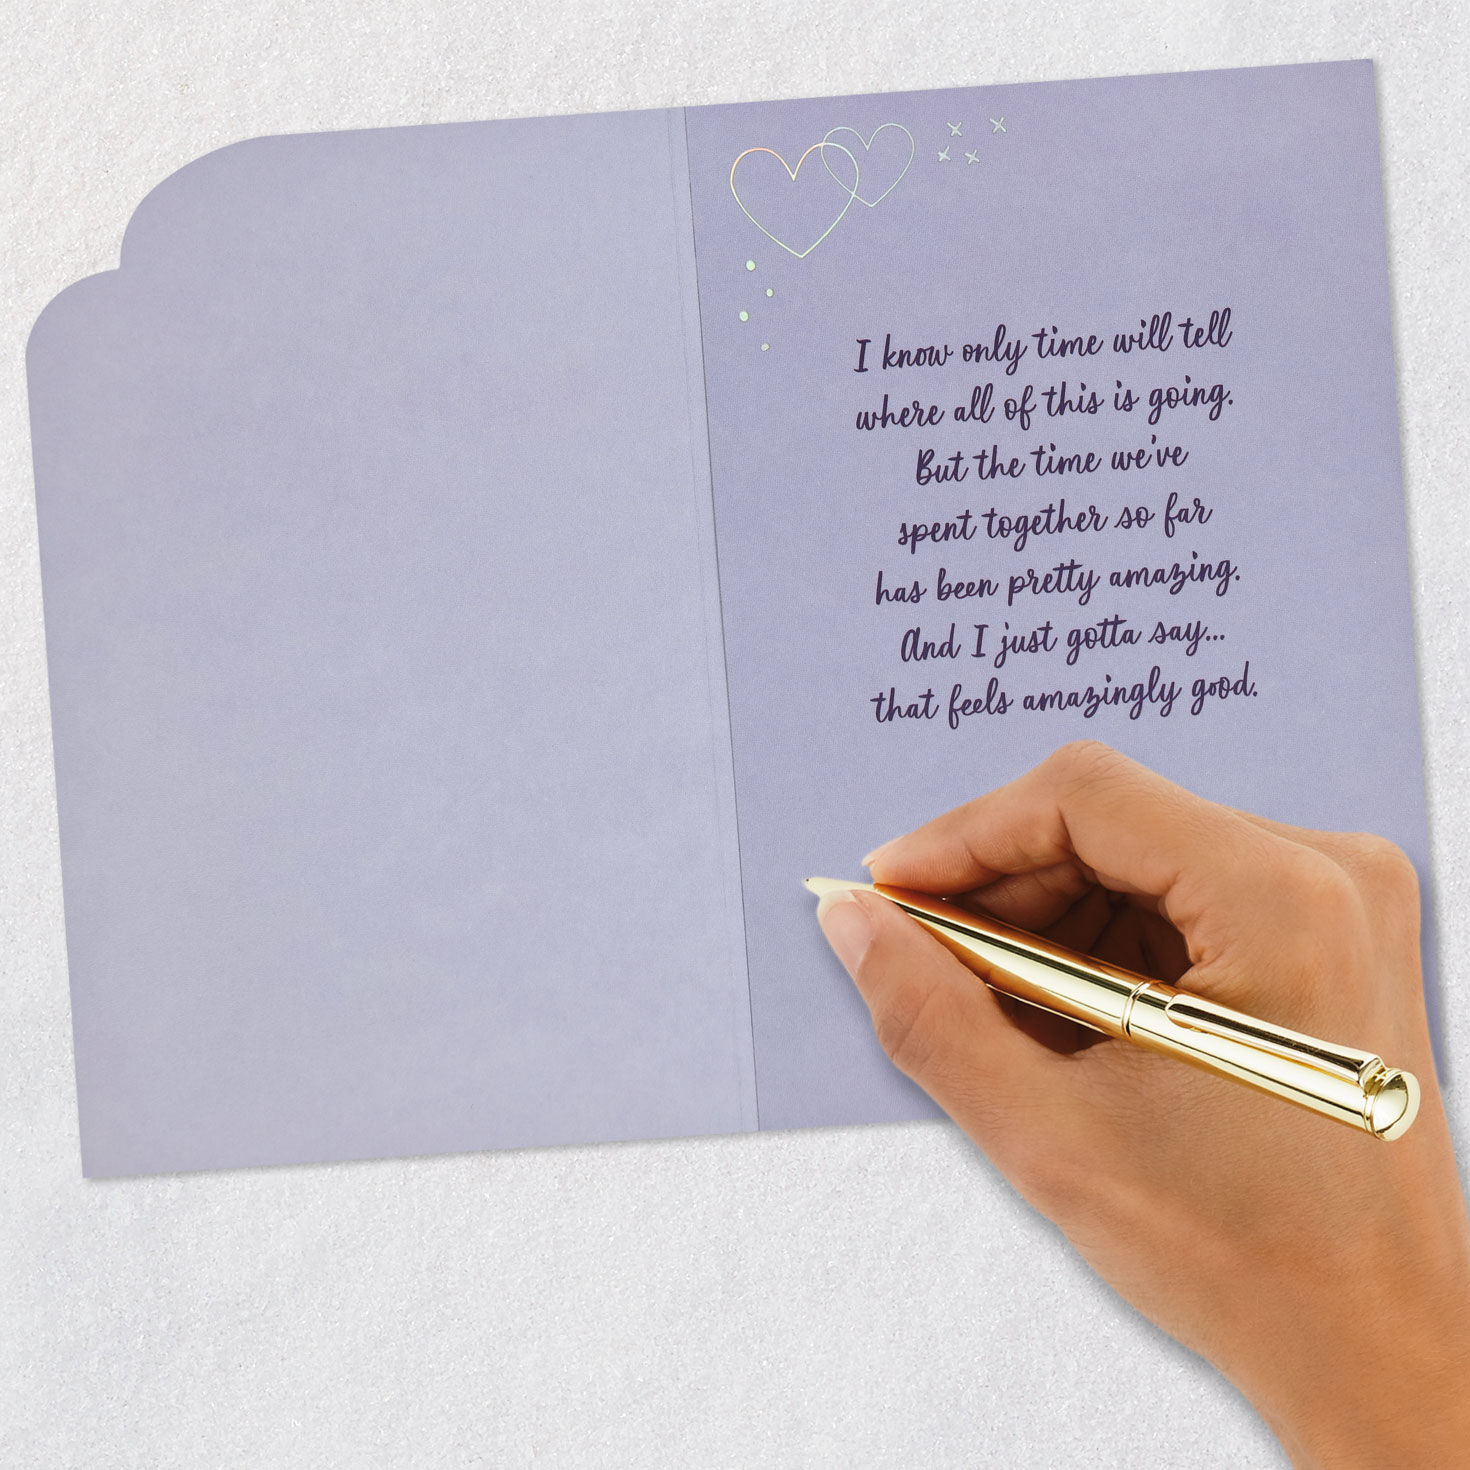 I know only time will tell
where all of this is going.
But the time we've
spent together so far
has been pretty amazing.
And I just gotta say...
that feels amazingly good.